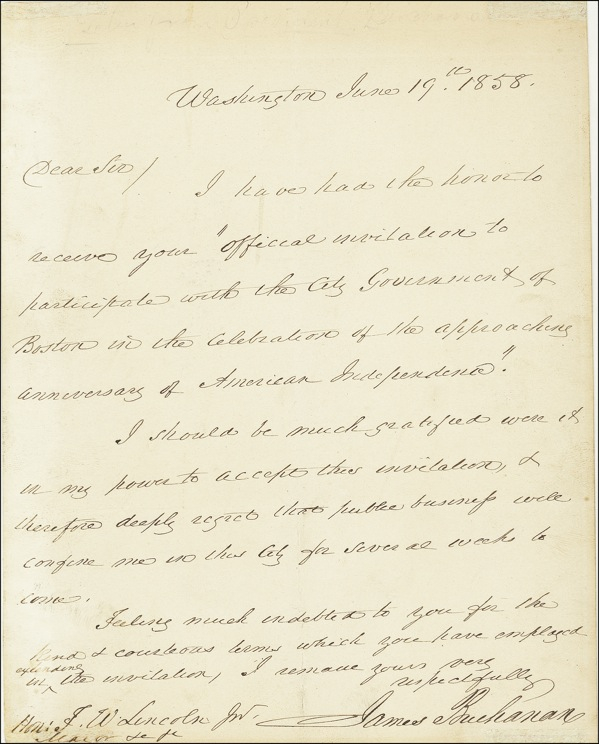 Washington June 19.th 1858.
Dear Sir/
I have had the honor to
receive your "official invitation to
participate with the City Government of
Boston in the Celebration of the approaching
anniversary of American Independence".
I should be much gratified were it
in my power to accept this invitation, &
therefore deeply regret that public business will
confine me in this City for several weeks to
come.
Feeling much indebted to you for the
kind & courteous terms which you have employed
extending
in the invitation, I remain yours very
respectfully
James Buchanan
Hon: F. W. Lincoln Jr.
Mayor &c &c